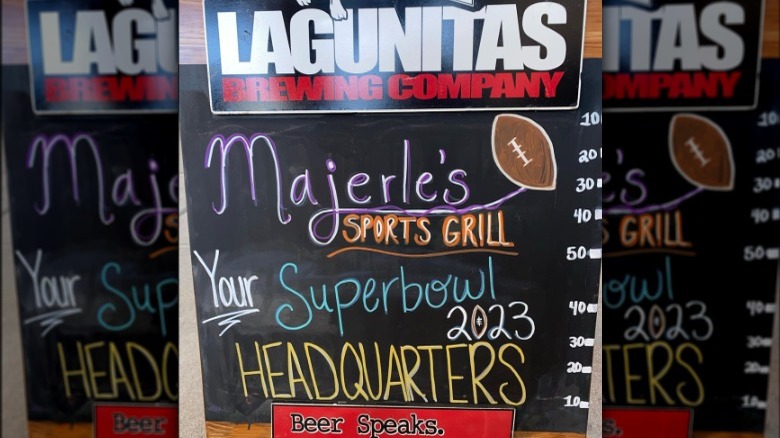 LAGUNITAS
BREWING COMPANY
Majerle's
SPORTS GRILL
Your Superbowl
2023
HEADQUARTERS
Beer Speaks.
10
20
30
40
50
40
30
20
10